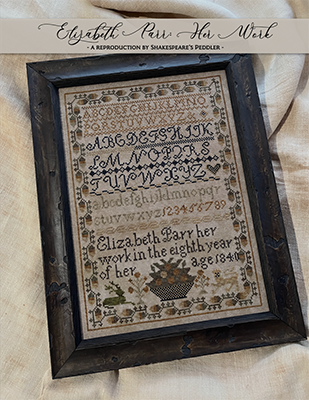 Elizabeth Parr: Her Work
- A REPRODUCTION BY SHAKESPEARE'S PEDDLER -
ABCDEFGHIJKLMNO
ABCDEFGHIJK
LMNOPQRS
TUVWXYZ
abcdefghijklmnopqr
stuvwxyz123456789
Elizabeth Parr her
work in the eighth year
of her age 1840